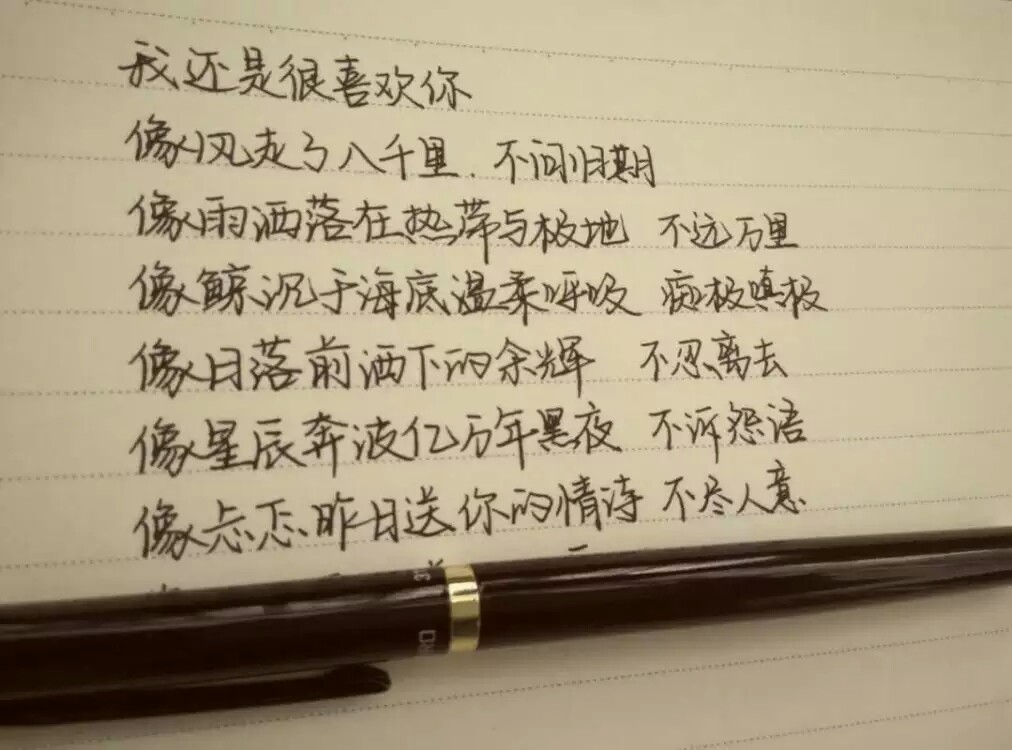 我还是很喜欢你
像风走了八千里.不问归期
像雨洒落在热带与极地 不远万里
像鲸沉于海底温柔呼吸 痴极嗔极
像日落前洒下的余辉 不忍离去
像星辰奔波亿万年黑夜 不诉怨语
像忐忑昨日送你的情诗 不尽人意